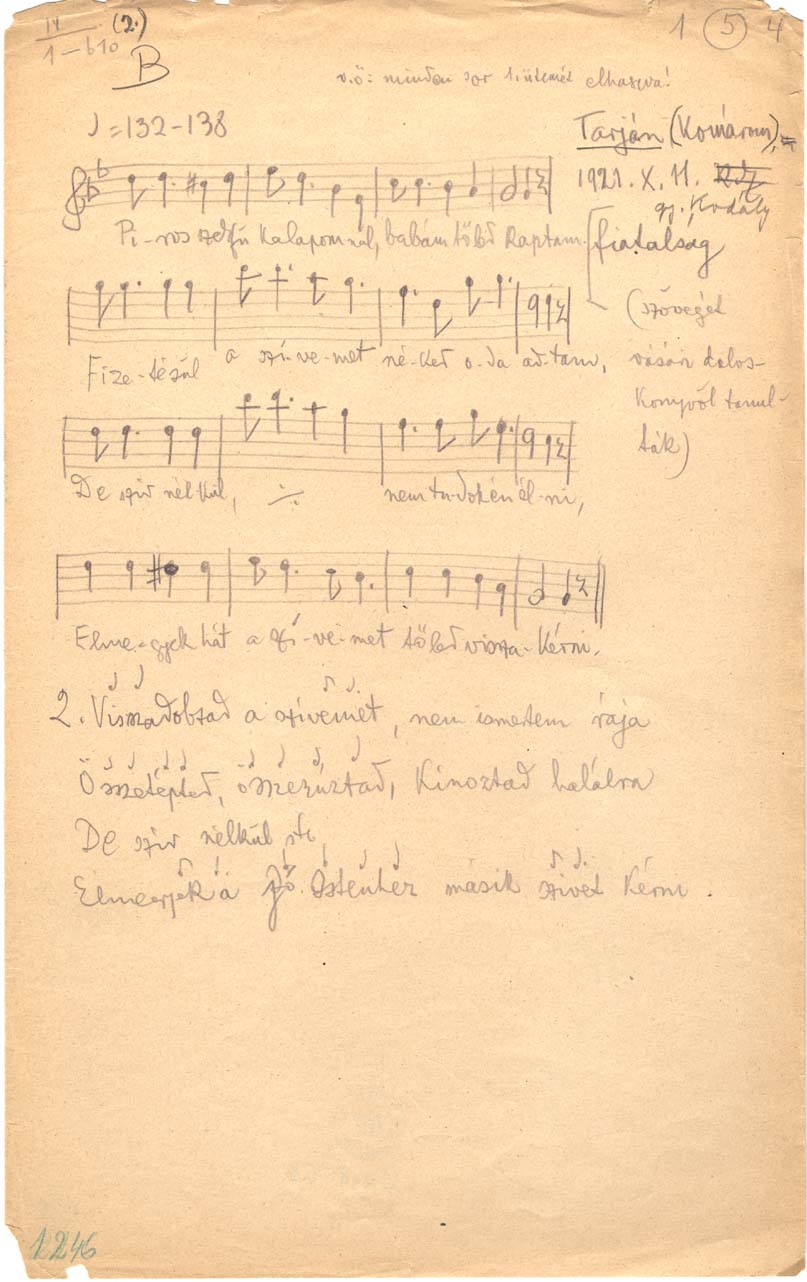 IV (2.) 1 5 4
1–610
B
v.ö: minden sor 1. ütemét
♩=132–138
Tarján (Komárom),
1921. X. 11.
gy. Kodály
Pi-ros kalapomnál, babám tőled kaptam
fiatalság
(szövegét
Fize-tésül a szí-ve-met né-ked o-da ad-tam,
vásári dalos-
könyvől tanul-
ták)
De szív nél-kül, ·/· nem tu-dok én él-ni,
Elme-gyek hát a szí-ve-met tőled vissza-kérni.
2. Visszadobtad a szívemet, nem ismertem rája
Összetépted, összezúztad, Kinoztad halálra
De szív nélkül stb
Elmegyek a Jó Istenhez másik szivet kérni.
1246